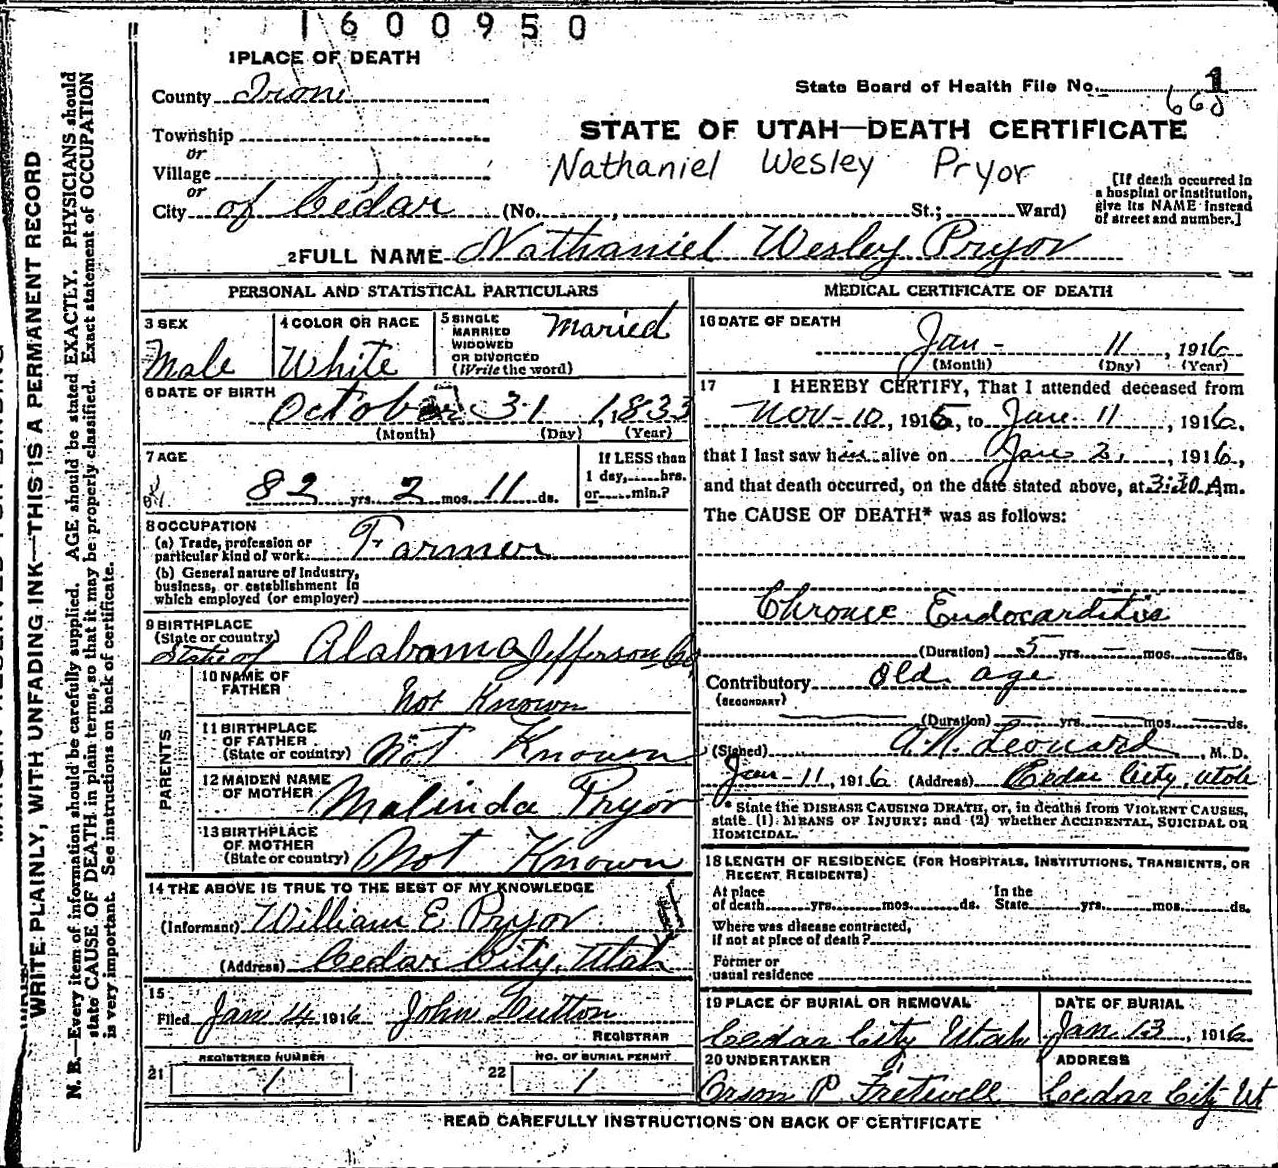 1600950
1 PLACE OF DEATH
County Iron
State Board of Health File No. 1
668
Township
or
Village
or
City of Cedar (No. , St.; Ward)
STATE OF UTAH—DEATH CERTIFICATE
Nathaniel Wesley Pryor
[If death occurred in
a hospital or institution,
give its NAME instead
of street and number.]
2 FULL NAME Nathaniel Wesley Pryor
PERSONAL AND STATISTICAL PARTICULARS
3 SEX
Male
4 COLOR OR RACE
White
5 SINGLE
MARRIED
WIDOWED
OR DIVORCED
(Write the word)
Maried
6 DATE OF BIRTH
October 31, 1833
(Month) (Day) (Year)
7 AGE
82 yrs. 2 mos. 11 ds.
If LESS than
1 day, hrs.
or min.?
8 OCCUPATION
(a) Trade, profession or
particular kind of work Farmer
(b) General nature of Industry,
business, or establishment in
which employed (or employer)
9 BIRTHPLACE
(State or country)
State of Alabama Jefferson Co,
PARENTS
10 NAME OF
FATHER
Not Known
11 BIRTHPLACE
OF FATHER
(State or country) Not Known
12 MAIDEN NAME
OF MOTHER Malinda Pryor
13 BIRTHPLACE
OF MOTHER
(State or country) Not Known
14 THE ABOVE IS TRUE TO THE BEST OF MY KNOWLEDGE
(Informant) William E Pryor
(Address) Cedar City, Utah
15
Filed Jan 14 1916 John Dutton
REGISTRAR
REGISTERED NUMBER
21 1
NO. OF BURIAL PERMIT
22 1
MEDICAL CERTIFICATE OF DEATH
16 DATE OF DEATH
Jan - 11, 1916
(Month) (Day) (Year)
17 I HEREBY CERTIFY, That I attended deceased from
Nov-10, 1915, to Jan-11, 1916,
that I last saw him alive on Jan 2, 1916,
and that death occurred, on the date stated above, at 3:30 A m.
The CAUSE OF DEATH* was as follows:
Chronic Endocarditis
(Duration) 5 yrs. — mos. — ds.
Contributory Old age
(SECONDARY)
(Duration) — yrs. — mos. — ds.
(Signed) A.N. Leonard, M. D.
Jan-11, 1916 (Address) Cedar City, Utah
* State the DISEASE CAUSING DEATH, or, in deaths from VIOLENT CAUSES,
state (1) MEANS OF INJURY; and (2) whether ACCIDENTAL, SUICIDAL OR
HOMICIDAL.
18 LENGTH OF RESIDENCE (FOR HOSPITALS, INSTITUTIONS, TRANSIENTS, OR
RECENT RESIDENTS)
At place
of death yrs. mos. ds.
In the
State yrs. mos. ds.
Where was disease contracted,
if not at place of death?
Former or
usual residence
19 PLACE OF BURIAL OR REMOVAL
Cedar City Utah
DATE OF BURIAL
Jan. 13, 1916
20 UNDERTAKER
Orson P Fretwell
ADDRESS
Cedar City Ut
READ CAREFULLY INSTRUCTIONS ON BACK OF CERTIFICATE
WRITE PLAINLY, WITH UNFADING INK—THIS IS A PERMANENT RECORD
N. B.—Every item of information should be carefully supplied. AGE should be stated EXACTLY. PHYSICIANS should
state CAUSE OF DEATH in plain terms, so that it may be properly classified. Exact statement of OCCUPATION
is very important. See instructions on back of certificate.